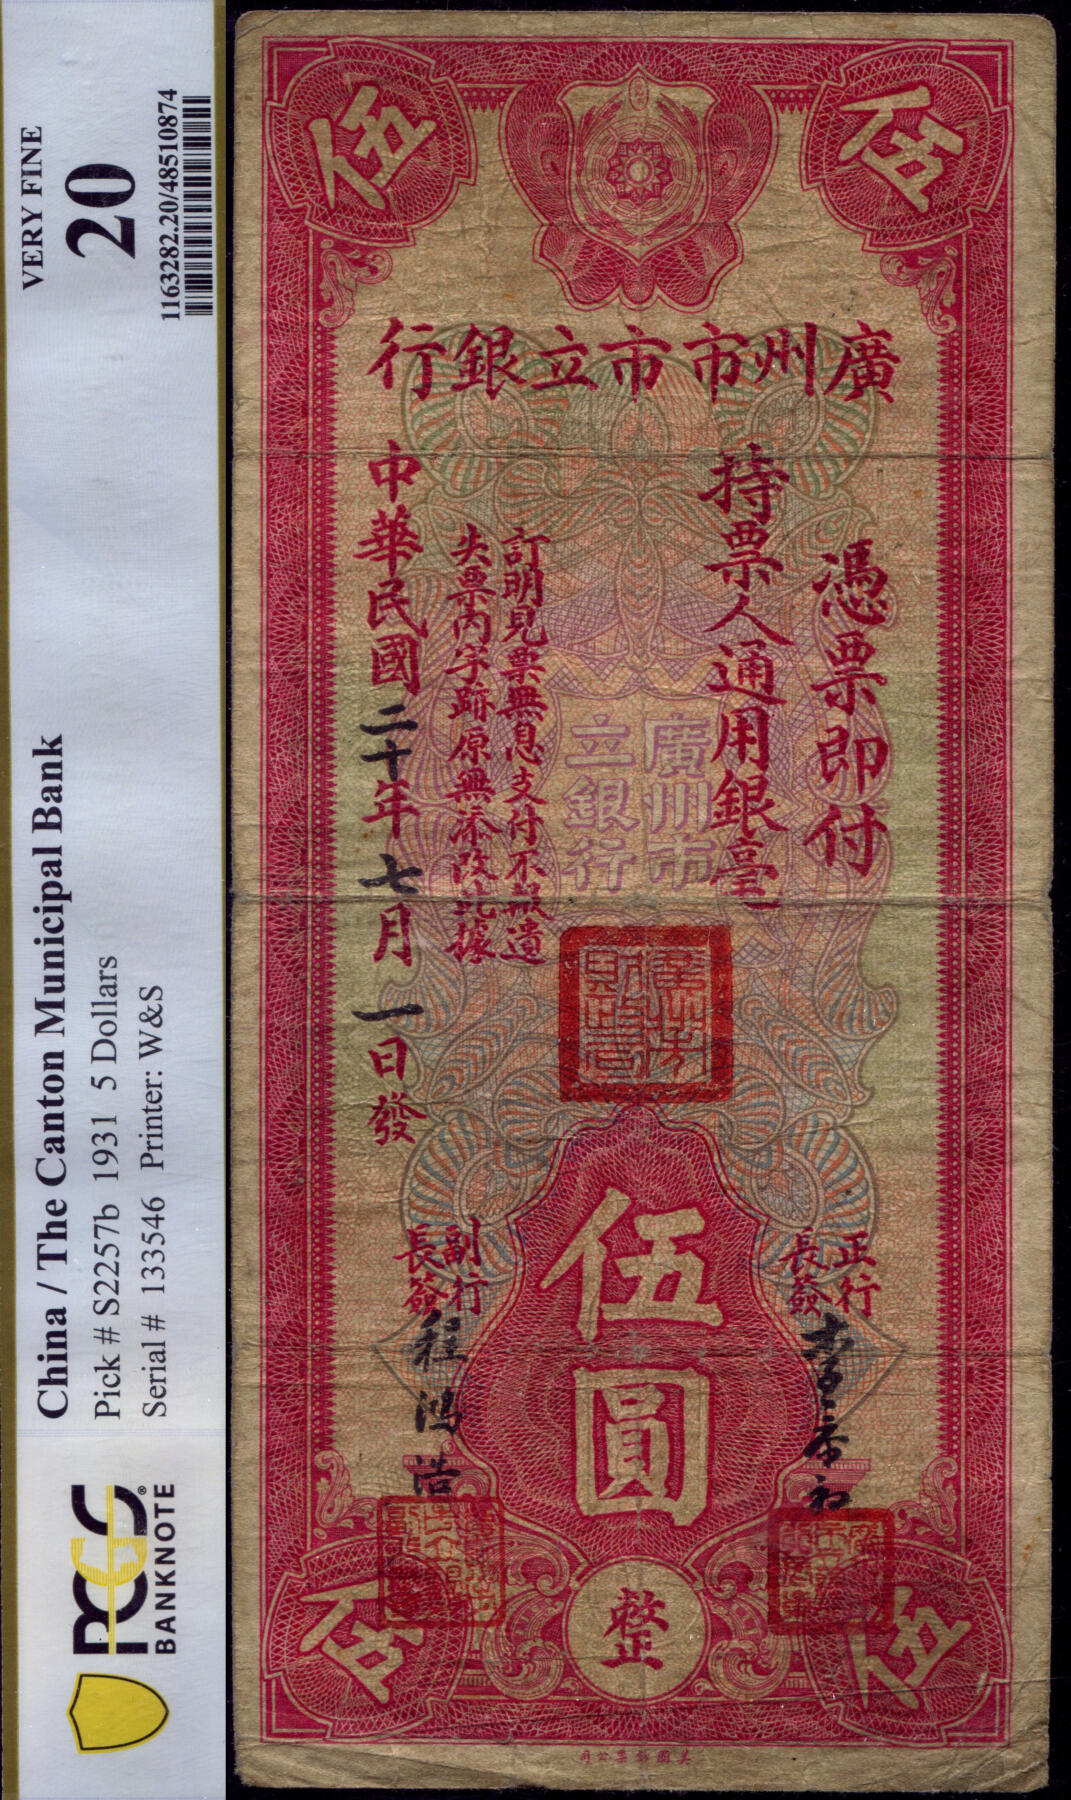 China / The Canton Municipal Bank
Pick # S2257b 1931 5 Dollars
Serial # 133546 Printer: W&S
VERY FINE
20
1163282.20/48510874
PCGS®
BANKNOTE
伍
伍
廣州市市立銀行
憑票即付
持票人通用銀毫
廣州市
立銀行
訂明見票無息支付不報遺
失票內字跡原無添改此據
中華民國二十年七月一日發
伍圓
正行
長簽
副行
長簽
程鴻
整
伍
伍